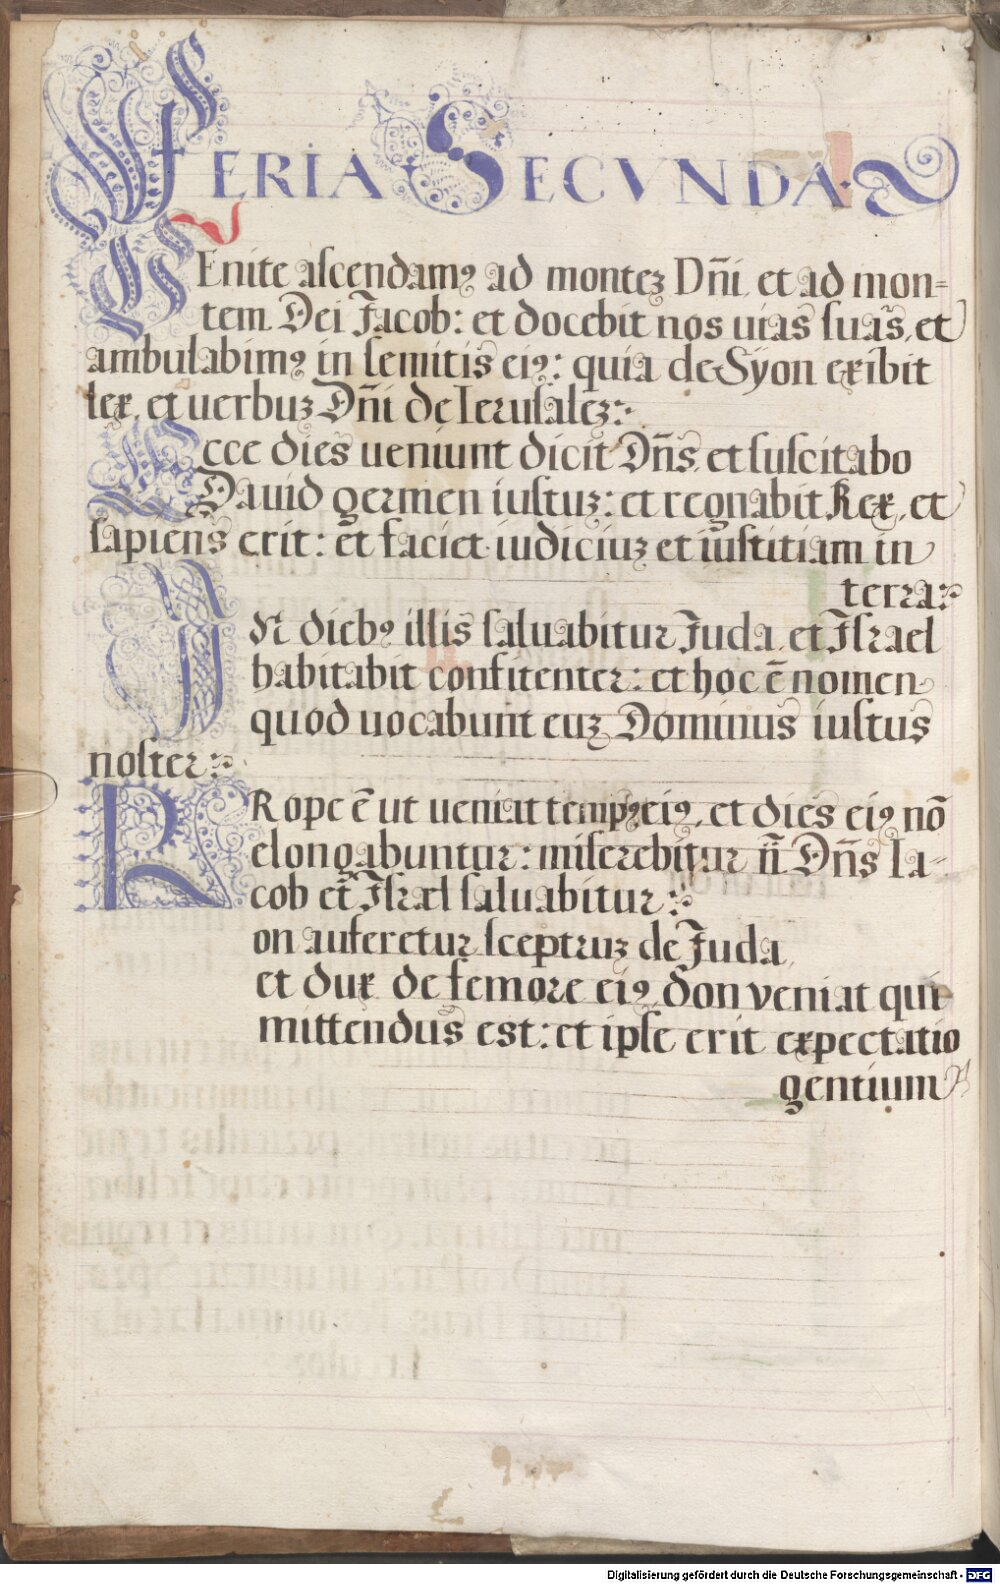 FERIA SECVNDA.
VEnite ascendamꝰ ad monteꝫ Dñi, et ad mon=
tem Dei Jacob: et docebit nos uias suas, et
ambulabimꝰ in semitis eiꝰ: quia de Syon exibit
lex, et uerbuꝫ Dñi de Ierusaleꝫ:
Ecce dies ueniunt dicit Dñs, et suscitabo
Dauid germen iustuꝫ: et regnabit Rex, et
sapiens erit: et faciet iudiciuꝫ et iustitiam in
terra:
IN diebꝰ illis saluabitur Juda, et Israel
habitabit confitenter: et hoc ē nomen
quod uocabunt euꝫ Dominus iustus
noster:
PRope ē ut ueniat tempꝰ eiꝰ, et dies eiꝰ nō
elongabuntur: miserebitur n̄ Dñs Ia-
cob et Israel saluabitur:
on auferetur sceptruꝫ de Juda,
et dux de femore eiꝰ, don veniat qui
mittendus est: et ipse erit expectatio
gentium
Digitalisierung gefördert durch die Deutsche Forschungsgemeinschaft - DFG